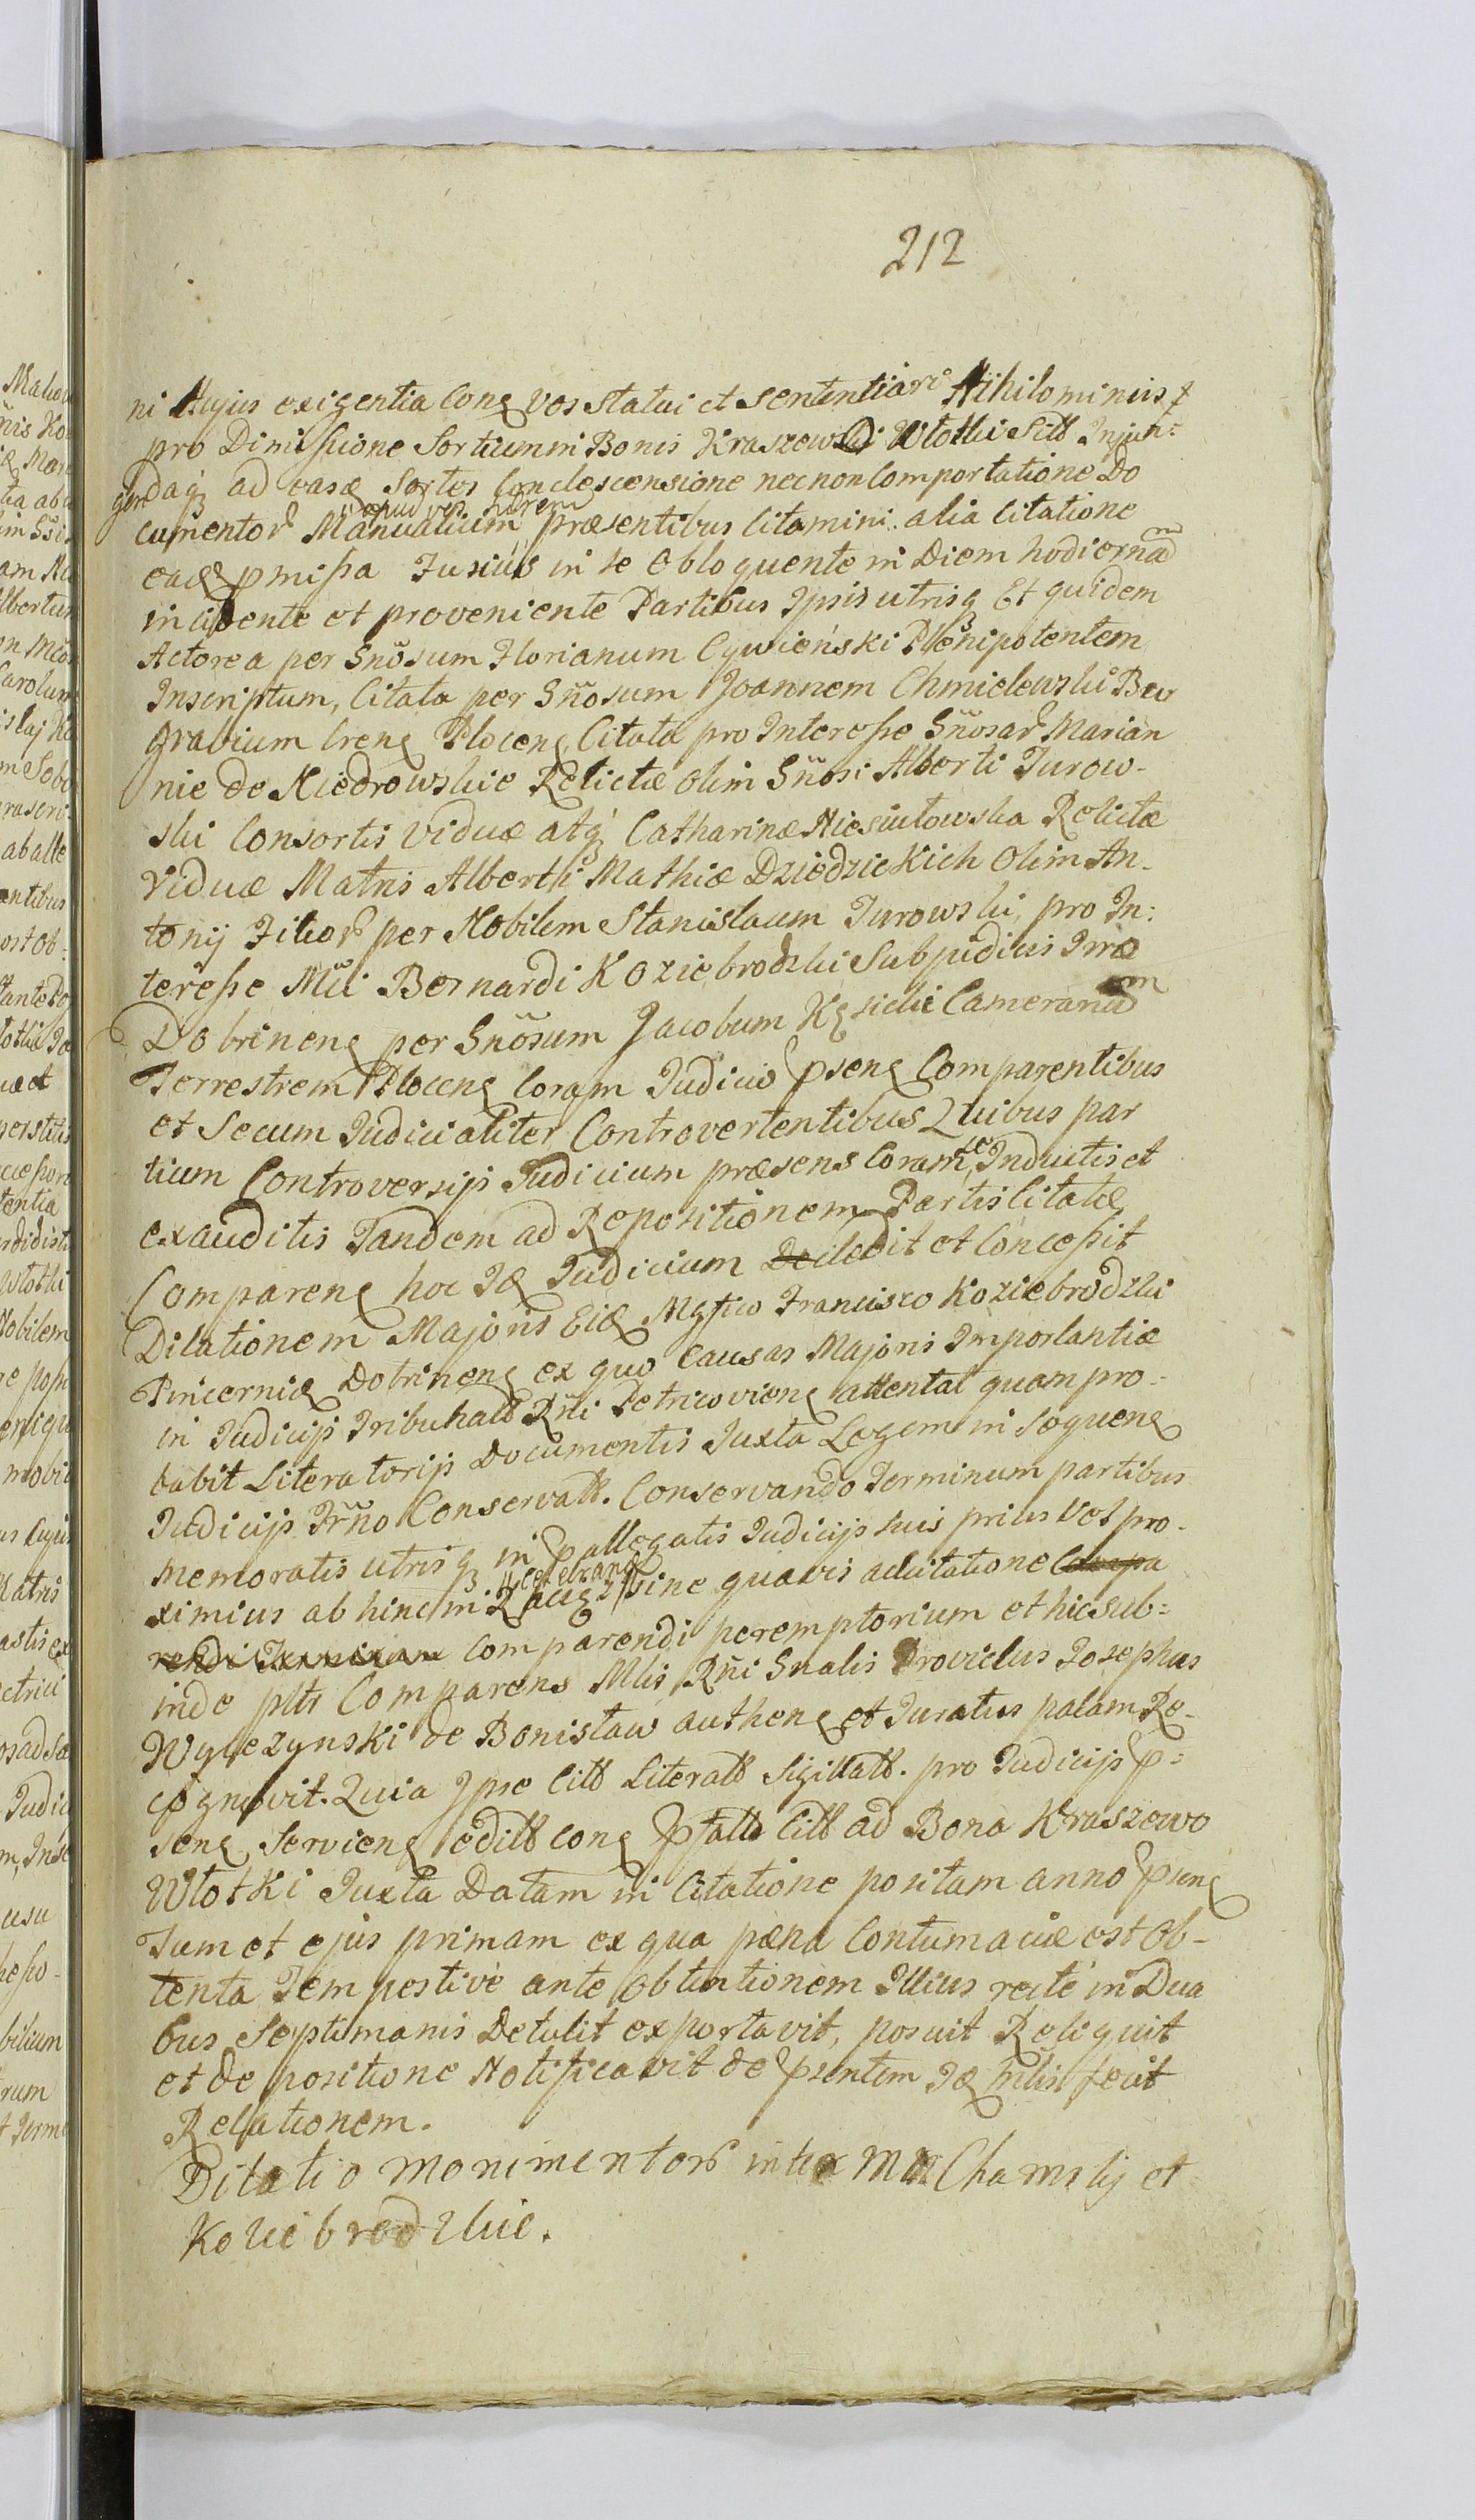 212
ni Hujus exigentia Conę vos statui et Sententiari Nihilominus
pro Dimissione Sortium in Bonis Kraszewo Wlotki Sitt Injun-
gendaq ad easdę Sortes Condescensione necnon Comportatione Do
cumentor Manualium apud vos haren praesentibus Citamini alia Citatione
eadę pmissa Fusius in se Obloquente in Diem hodiernam
incidente et proveniente Partibus Ipsis utrisq Et quidem
Actorea per Snosum Florianum Cywieński Plenipotentem
Inscriptum, Citata per Snosum Joannem Chmielewski Bur
grabium Crenę Plocenę Citata pro Interesse Snosar Marian
nie de Niedrowskie Relictae olim Snosi Alberti Turow-
ski Consortis Viduae atq Catharinae Niesiułowska Relictae
Viduae Matris Alberti Mathiae Dziedzickich Olim An-
tonij Filior per Nobilem Stanislaum Turowski, pro In:
teresse Mci Bernardi Koziebrodzki Subjudicis Trrae
Dobrinenę per Snosum Jacobum Kęsicki Camerarium
Terrestrem Plocenę Coram Judicio psenę Comparentibus
et Secum Judicialiter Controvertentibus Quibus par
tium Controversijs Judicium praesens Coram se Inductis et
exauditis Tandem ad Repositionem Partis Citatae
Comparenę hoc Idę Judicium Dedit et Concessit
Dilationem Majoris Eidę Mgfico Francisco Koziebrodzki
Pincernię Dobrinenę ex quo Causas Majoris Importantiae
in Judicijs Tribunalb Rni Petricovienę attentat quam pro-
babit Literatorijs Documentis Juxta Legem in sequenę
Judicijs Trno Conservatt. Conservando Terminum partibus
memoratis utrisq in pallegatis Judicijs suis prius vel pro-
ximius ab hinc in celebrandę sine quavis adcitatione Compa
rendi Terminum Comparendi peremptorium et hic sub-
inde plts Comparens Mlis Rni Gnalis Providus Josephus
Wyrzynski de Bonisław authenę et Juratus palam Re-
cognovit. Quia Ipse Citt Literatt Sigillatt. pro Judicijs p-
senę Servienę editt conę pfatt Citt ad Bona Kraszewo
Wlotki Juxta Datam in Citatione positam anno psenę
Tum et ejus primam ex qua paena Contumaciae est Ob-
tenta Tempestivè ante obtentionem Illius recté in Dua
bus Septimanis Detulit exportavit, posuit Reliquit
et de positione Notificavit de psentem Idę mlis fecit
Relationem.
Dilatio Monimentor inter MM Chamskij et
Koziebrodzkie.